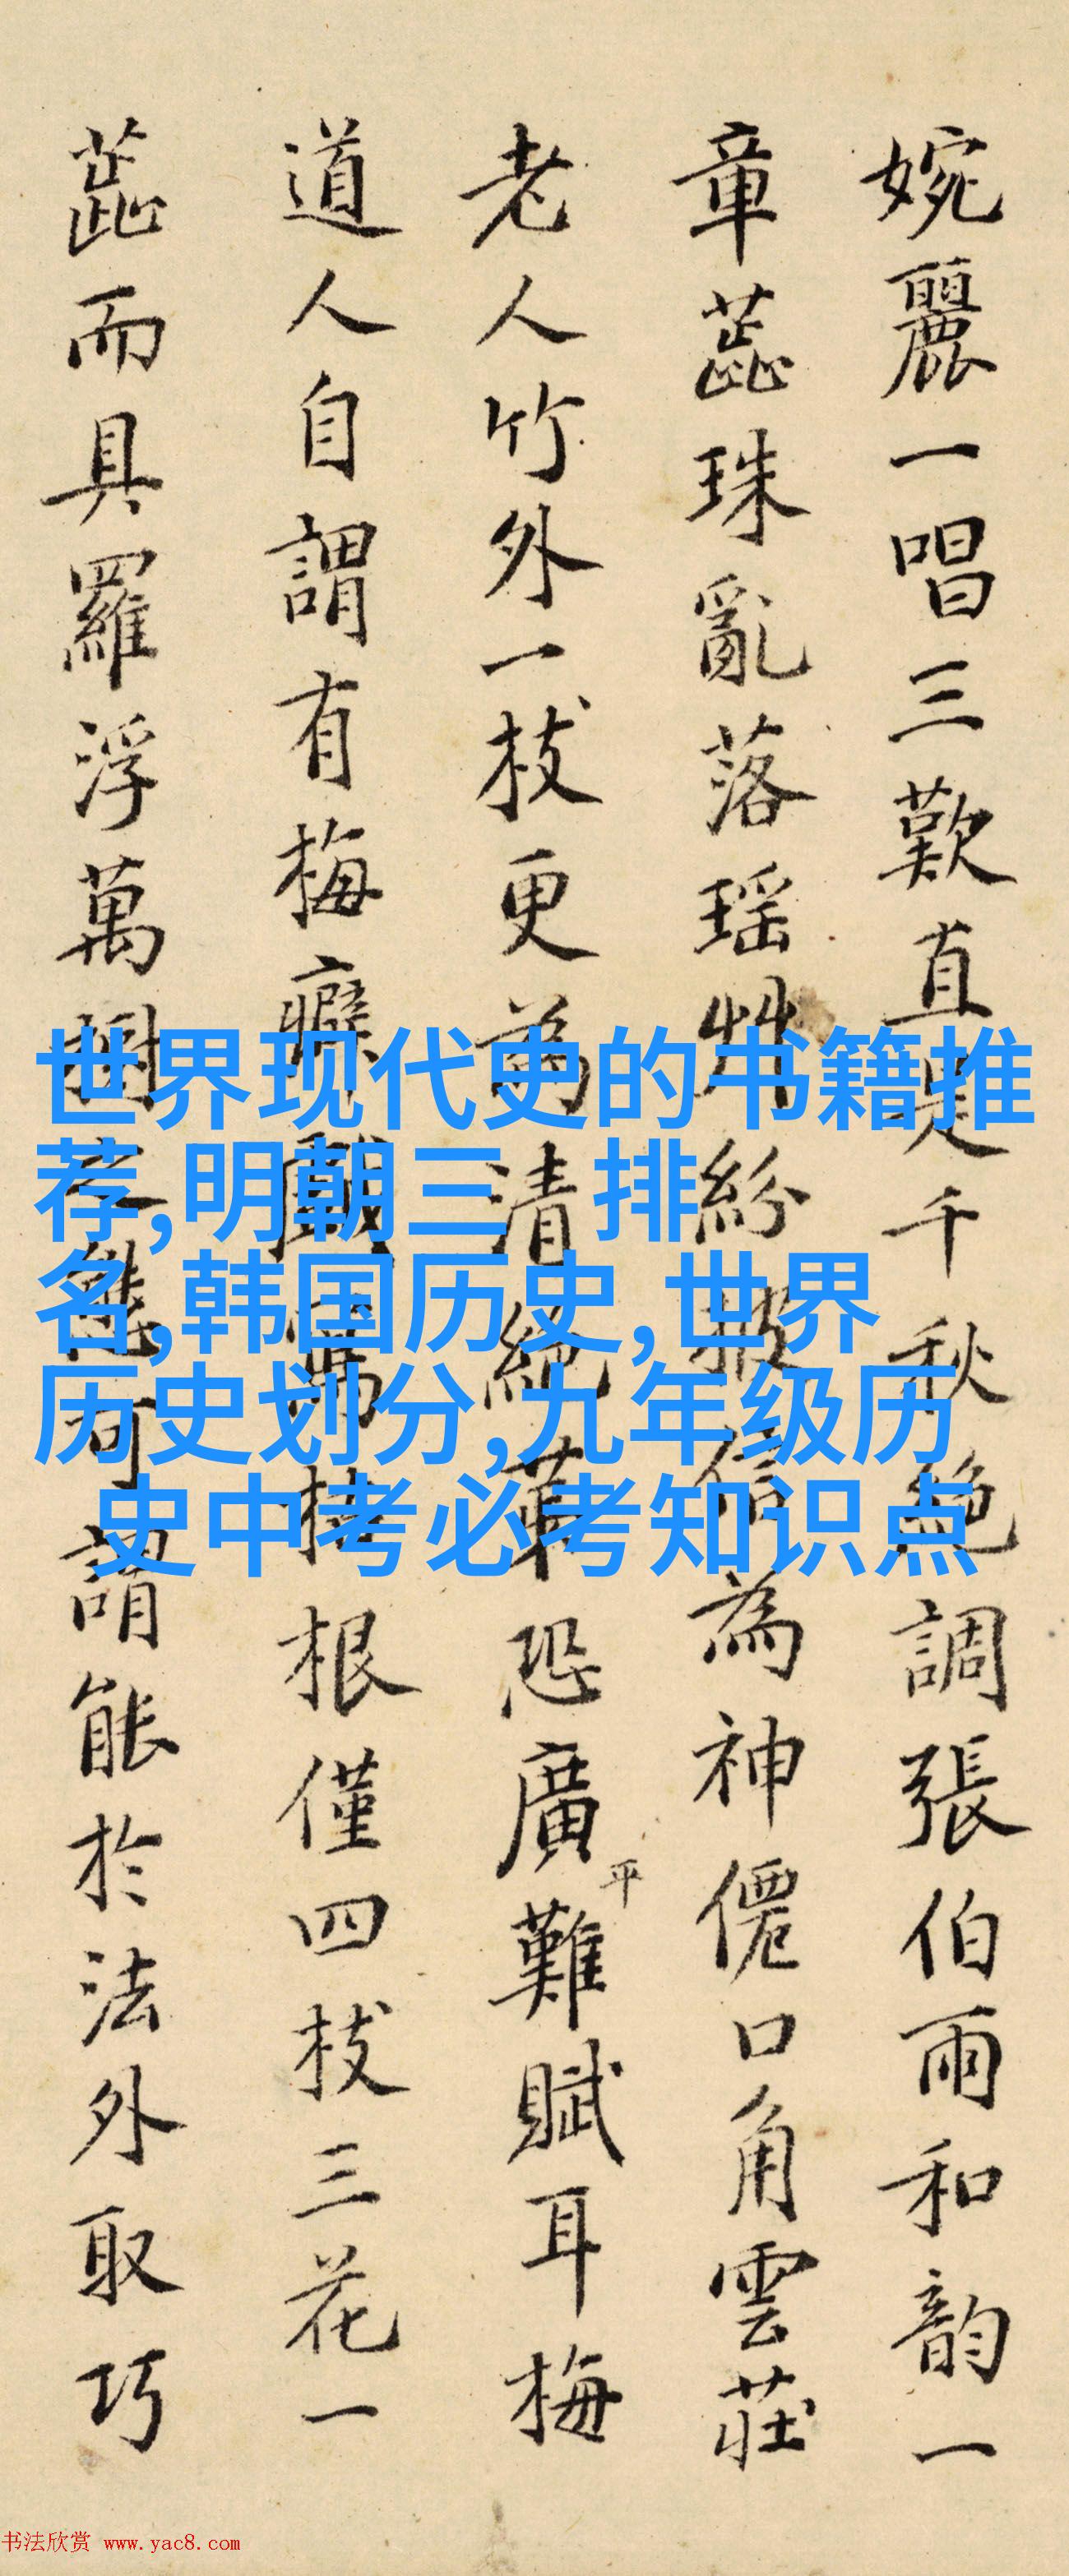 婉麗一唱三歎直是千秋絶調張伯雨和韵一
章蕋珠亂落瑶牲紛披信為神僊口角雲莊
老人竹外一枝更為清絶華恐廣平難賦耳梅
道人自謂有梅癖戲寫梅根僅四枝三花一
蕋而具羅浮萬樹之態可謂能於法外取巧
世界现代史的书籍推
荐,明朝三 排
名,韩国历史,世界
历史划分,九年级历
史中考必考知识点
书法欣赏 www.yac8.com